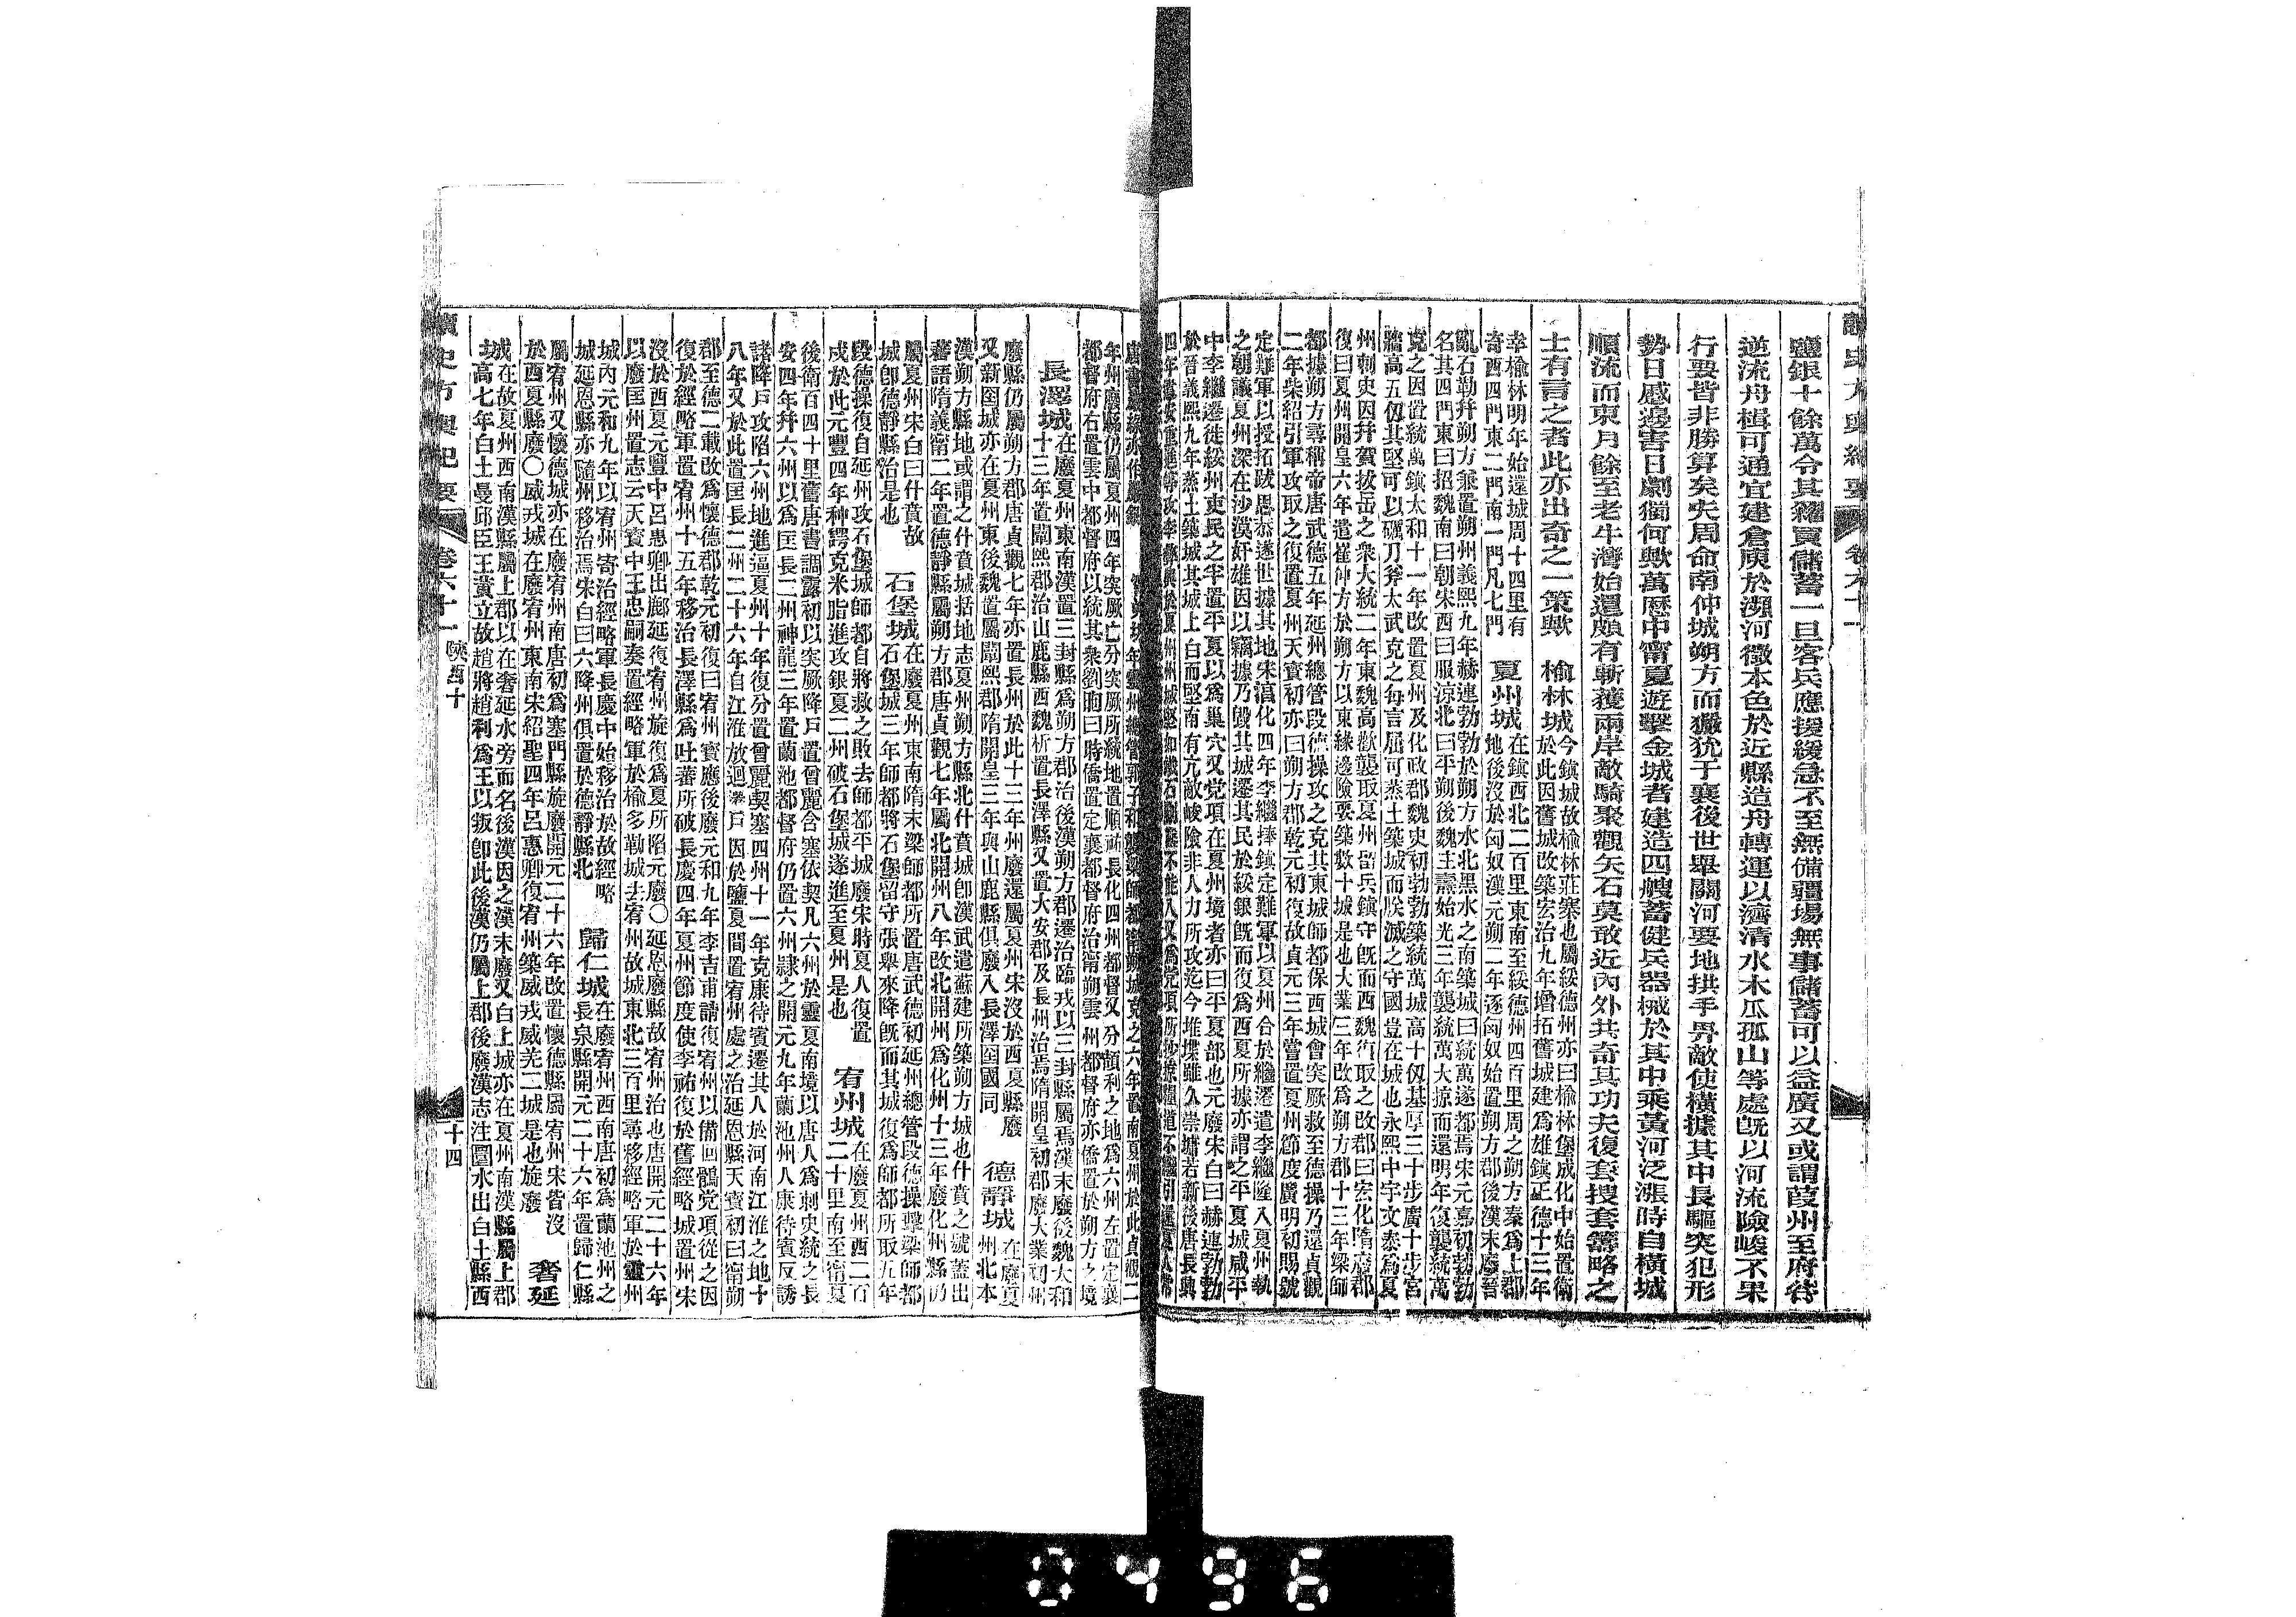 鹽銀十餘萬令其糴買儲蓄一旦客兵應援緩急不至無備疆場無事儲蓄可以益廣又或謂葭州至府谷
逆流舟楫可通宜建倉庾於瀕河徵本色於近縣造舟轉運以濟清水木瓜孤山等處旣以河流險峻不果
行要皆非勝算矣夫周命南仲城朔方而玁狁于襄後世舉關河要地拱手畀敵使橫據其中長驅突犯形
勢日蹙邊害日劇獨何歟萬歷中甯夏遊擊金城者建造四艘蓄健兵器械於其中乘黃河泛漲時自橫城
順流而東月餘至老牛灣始還頗有斬獲兩岸敵騎聚觀矢石莫敢近內外共奇其功夫復套搜套籌略之
士有言之者此亦出奇之一策歟
榆林城
今鎮城故榆林莊寨也屬綏德州亦曰榆林堡成化中始置衛
於此因舊城改築宏治九年增拓舊城建爲雄鎮正德十三年
幸榆林明年始還城周十四里有
奇西四門東二門南一門凡七門
夏州城
在鎮西北二百里東南至綏德州四百里周之朔方秦爲上郡
地後沒於匈奴漢元朔二年逐匈奴始置朔方郡後漢末廢晉
亂石勒幷朔方兼置朔州義熙九年赫連勃勃於朔方水北黑水之南築城曰統萬遂都焉宋元嘉初勃勃
名其四門東曰招魏南曰朝宋西曰服涼北曰平朔後魏主燾始光三年襲統萬大掠而還明年復襲統萬
克之因置統萬鎮太和十一年改置夏州及化政郡魏史初勃勃築統萬城高十仭基厚三十步廣十步宮
牆高五仭其堅可以礪刀斧太武克之每言屈可蒸土築城而朕滅之守國豈在城也永熙中宇文泰爲夏
州刺史因幷賀拔岳之衆大統二年東魏高歡襲取夏州留兵鎮守旣而西魏復取之改郡曰宏化隋廢郡
復曰夏州開皇六年遣崔仲方於朔方以東緣邊險要築數十城是也大業三年改爲朔方郡十三年梁師
都據朔方尋稱帝唐武德五年延州總管段德操攻之克其東城師都保西城會突厥救至德操乃還貞觀
二年柴紹引軍攻取之復置夏州天寶初亦曰朔方郡乾元初復故貞元三年嘗置夏州節度廣明初賜號
定難軍以授拓跋思恭遂世據其地宋淳化四年李繼捧鎮定難軍以夏州合於繼遷遣李繼隆入夏州執
之朝議夏州深在沙漠奸雄因以竊據乃毀其城遷其民於綏銀旣而復爲西夏所據亦謂之平夏城咸平
中李繼遷徙綏州吏民之半置平夏以爲巢穴又党項在夏州境者亦曰平夏部也元廢宋白曰赫連勃勃
於晉義熙九年蒸土築城其城上白而堅南有亢敵峻險非人力所攻迄今堆堞雖久崇墉若新後唐長興
年州廢縣仍屬夏州四年突厥亡分突厥所統地置順祐長化四州都督又分頡利之地爲六州左置定襄
都督府右置雲中都督府以統其衆劉昫曰時僑置定襄都督府治甯朔雲州都督府亦僑置於朔方之境
長澤城
在廢夏州東南漢置三封縣爲朔方郡治後漢朔方郡遷治臨戎以三封縣屬焉漢末廢後魏太和
十三年置闡熙郡治山鹿縣西魏析置長澤縣又置大安郡及長州治焉隋開皇初郡廢大業初州
廢縣仍屬朔方郡唐貞觀七年亦置長州於此十三年州廢還屬夏州宋沒於西夏縣廢
又新囶城亦在夏州東後魏置屬闡熙郡隋開皇三年與山鹿縣俱廢入長澤囶國同
德靜城
在廢夏
州北本
漢朔方縣地或謂之什賁城括地志夏州朔方縣北什賁城卽漢武遣蘇建所築朔方城也什賁之號蓋出
蕃語隋義甯二年置德靜縣屬朔方郡唐貞觀七年屬北開州八年改北開州爲化州十三年廢化州縣仍
屬夏州宋白曰什賁故
城卽德靜縣治是也
石堡城
在廢夏州東南隋末梁師都所置唐武德初延州總管段德操擊梁師都
石堡城三年師都將石堡留守張舉來降旣而其城復爲師都所取五年
段德操復自延州攻石堡城師都自將救之敗去師都平城廢宋時夏人復置
戍於此元豐四年种諤克米脂進攻銀夏二州破石堡城遂進至夏州是也
宥州城
在廢夏州西二百
二十里南至甯夏
後衛百四十里舊唐書調露初以突厥降戶置魯麗含塞依契凡六州於靈夏南境以唐人爲刺史統之長
安四年幷六州以爲匡長二州神龍三年置蘭池都督府仍置六州隷之開元九年蘭池州人康待賓反誘
諸降戶攻陷六州地進逼夏州十年復分置魯麗契塞四州十一年克康待賓遷其人於河南江淮之地十
八年又於此置匡長二州二十六年自江淮放迴諸戶因於鹽夏間置宥州處之治延恩縣天寶初曰甯朔
郡至德二載改爲懷德郡乾元初復曰宥州寶應後廢元和九年李吉甫請復宥州以備回鶻党項從之因
復於經略軍置宥州十五年移治長澤縣爲吐蕃所破長慶四年夏州節度使李祐復於舊經略城置州宋
沒於西夏元豐中呂惠卿出鄜延復宥州旋復爲夏所陷元廢○延恩廢縣故宥州治也唐開元二十六年
以廢匡州置志云天寶中王忠嗣奏置經略軍於榆多勒城去宥州故城東北三百里尋移經略軍於靈州
城內元和九年以宥州寄治經略軍長慶中始移治於故經略
城延恩縣亦隨州移治焉宋白曰六降州俱置於德靜縣北
歸仁城
在廢宥州西南唐初爲蘭池州之
長泉縣開元二十六年置歸仁縣
屬宥州又懷德城亦在廢宥州南唐初爲塞門縣旋廢開元二十六年改置懷德縣屬宥州宋皆沒
於西夏縣廢○威戎城在廢宥州東南宋紹聖四年呂惠卿復宥州築威戎威羌二城是也旋廢
奢延
城在故夏州西南漢縣屬上郡以在奢延水旁而名後漢因之漢末廢又白土城亦在夏州南漢縣屬上郡
故高七年白土曼邱臣王黃立故趙將趙利爲王以叛卽此後漢仍屬上郡後廢漢志注圁水出白土縣西
讀史方輿紀要
卷六十一
陝西十
十四
0496